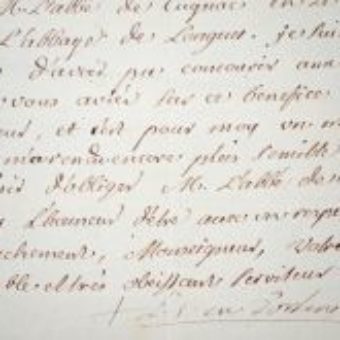 M. L'abbé de Cugnac
L'abbaye de Longuet. je suis
d'avoir pu concourir aux
vous aviés sur ce benefice
et c'est pour moy un
m'a rendu encore plus sensible
d'obliger M. L'abbé de
L'honneur d'être avec un
Monseigneur, votre
ble et très obeissant serviteur